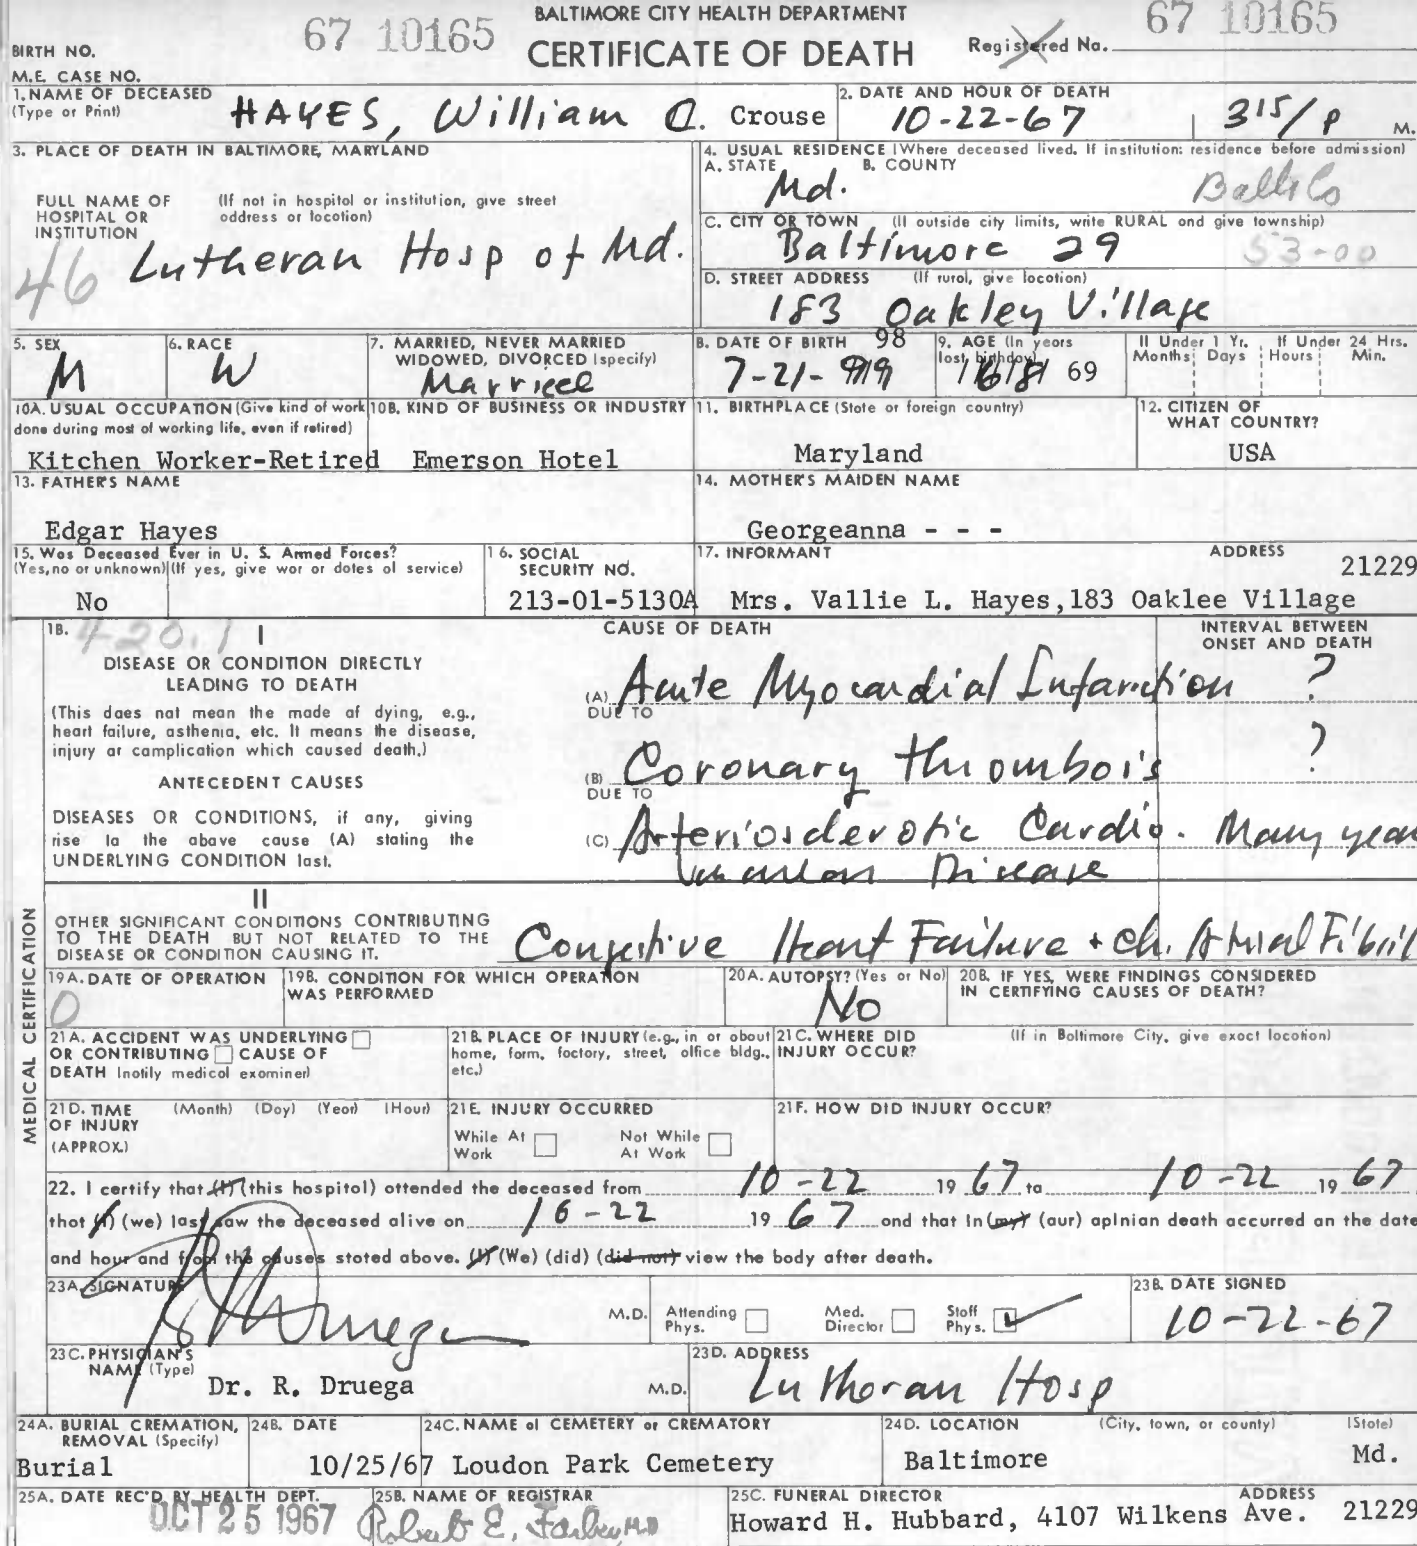 BALTIMORE CITY HEALTH DEPARTMENT
67 10165 67 10165
BIRTH NO. CERTIFICATE OF DEATH Registered No.
M.E. CASE NO.
1. NAME OF DECEASED (Type or Print) HAYES, William C. Crouse
2. DATE AND HOUR OF DEATH 10-22-67 3 15/P M.
3. PLACE OF DEATH IN BALTIMORE, MARYLAND
FULL NAME OF HOSPITAL OR INSTITUTION (If not in hospital or institution, give street address or location)
46 Lutheran Hosp of Md.
4. USUAL RESIDENCE (Where deceased lived. If institution: residence before admission)
A. STATE Md. B. COUNTY Balto Co
C. CITY OR TOWN (If outside city limits, write RURAL and give township)
Baltimore 29 53-00
D. STREET ADDRESS (If rural, give location)
183 Oakley Village
5. SEX M
6. RACE W
7. MARRIED, NEVER MARRIED WIDOWED, DIVORCED (specify) Married
8. DATE OF BIRTH 98 7-21-
9. AGE (In years last birthday) 69
If Under 1 Yr. Months Days If Under 24 Hrs. Hours Min.
10A. USUAL OCCUPATION (Give kind of work done during most of working life, even if retired)
Kitchen Worker-Retired
10B. KIND OF BUSINESS OR INDUSTRY
Emerson Hotel
11. BIRTHPLACE (State or foreign country)
Maryland
12. CITIZEN OF WHAT COUNTRY?
USA
13. FATHER'S NAME
Edgar Hayes
14. MOTHER'S MAIDEN NAME
Georgeanna - - -
15. Was Deceased Ever in U. S. Armed Forces?
(Yes, no or unknown) (If yes, give war or dates of service)
No
16. SOCIAL SECURITY NO.
213-01-5130A
17. INFORMANT ADDRESS 21229
Mrs. Vallie L. Hayes,183 Oaklee Village
18. 420.1 I CAUSE OF DEATH INTERVAL BETWEEN ONSET AND DEATH
DISEASE OR CONDITION DIRECTLY LEADING TO DEATH
(This does not mean the mode of dying, e.g., heart failure, asthenia, etc. It means the disease, injury or complication which caused death.)
(A) Acute Myocardial Infarction ?
DUE TO
ANTECEDENT CAUSES
(B) Coronary thrombois ?
DUE TO
DISEASES OR CONDITIONS, if any, giving rise to the above cause (A) stating the UNDERLYING CONDITION last.
(C) Arteriosclerotic Cardio. Many year
Vascular Disease
II
OTHER SIGNIFICANT CONDITIONS CONTRIBUTING TO THE DEATH BUT NOT RELATED TO THE DISEASE OR CONDITION CAUSING IT.
Congestive Heart Failure + ch. Atrial Fibril
MEDICAL CERTIFICATION
19A. DATE OF OPERATION 0
19B. CONDITION FOR WHICH OPERATION WAS PERFORMED
20A. AUTOPSY? (Yes or No) No
20B. IF YES, WERE FINDINGS CONSIDERED IN CERTIFYING CAUSES OF DEATH?
21A. ACCIDENT WAS UNDERLYING OR CONTRIBUTING CAUSE OF DEATH (notify medical examiner)
21B. PLACE OF INJURY (e.g., in or about home, farm, factory, street, office bldg., etc.)
21C. WHERE DID INJURY OCCUR? (If in Baltimore City, give exact location)
21D. TIME OF INJURY (APPROX.) (Month) (Day) (Year) (Hour)
21E. INJURY OCCURRED
While At Work Not While At Work
21F. HOW DID INJURY OCCUR?
22. I certify that (I) (this hospital) attended the deceased from 10-22 19 67 to 10-22 19 67
that (I) (we) last saw the deceased alive on 10-22 19 67 and that in (my) (our) opinion death occurred on the date
and hour and from the causes stated above. (I) (We) (did) (did not) view the body after death.
23A. SIGNATURE R Druega M.D. Attending Phys. Med. Director Staff Phys.
23B. DATE SIGNED 10-22-67
23C. PHYSICIAN'S NAME (Type) Dr. R. Druega M.D.
23D. ADDRESS Lutheran Hosp
24A. BURIAL CREMATION, REMOVAL (Specify) Burial
24B. DATE 10/25/67
24C. NAME of CEMETERY or CREMATORY Loudon Park Cemetery
24D. LOCATION (City, town, or county) (State) Baltimore Md.
25A. DATE REC'D BY HEALTH DEPT. OCT 25 1967
25B. NAME OF REGISTRAR Robert E. Farber, M.D
25C. FUNERAL DIRECTOR ADDRESS
Howard H. Hubbard, 4107 Wilkens Ave. 21229